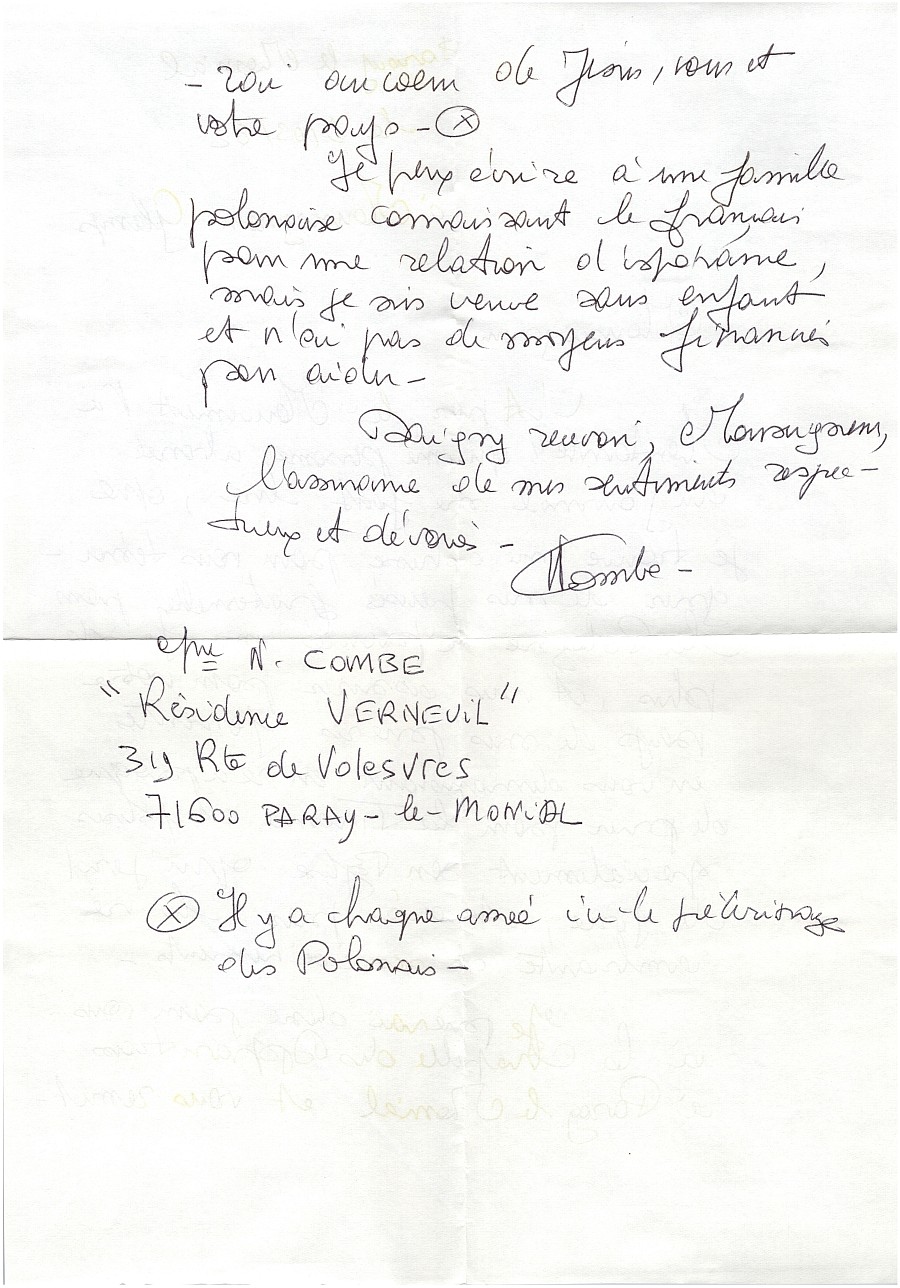 - rai au coeur de Jésus, vous et
votre pays - ⓧ
Je peux écrire à une famille
polonaise connaissant le français
pour une relation d'espérance,
mais je suis veuve sans enfant
et n'ai pas de moyens financiers
pour aider -
Daignez recevoir, Monseigneur,
l'assurance de mes sentiments respec-
tueux et dévoués -
NCombe -
N. COMBE
"Résidence VERNEUIL"
319 Rte de Volesvres
71600 PARAY-le-MONIAL
ⓧ Il y a chaque année ici le pélerinage
des Polonais -